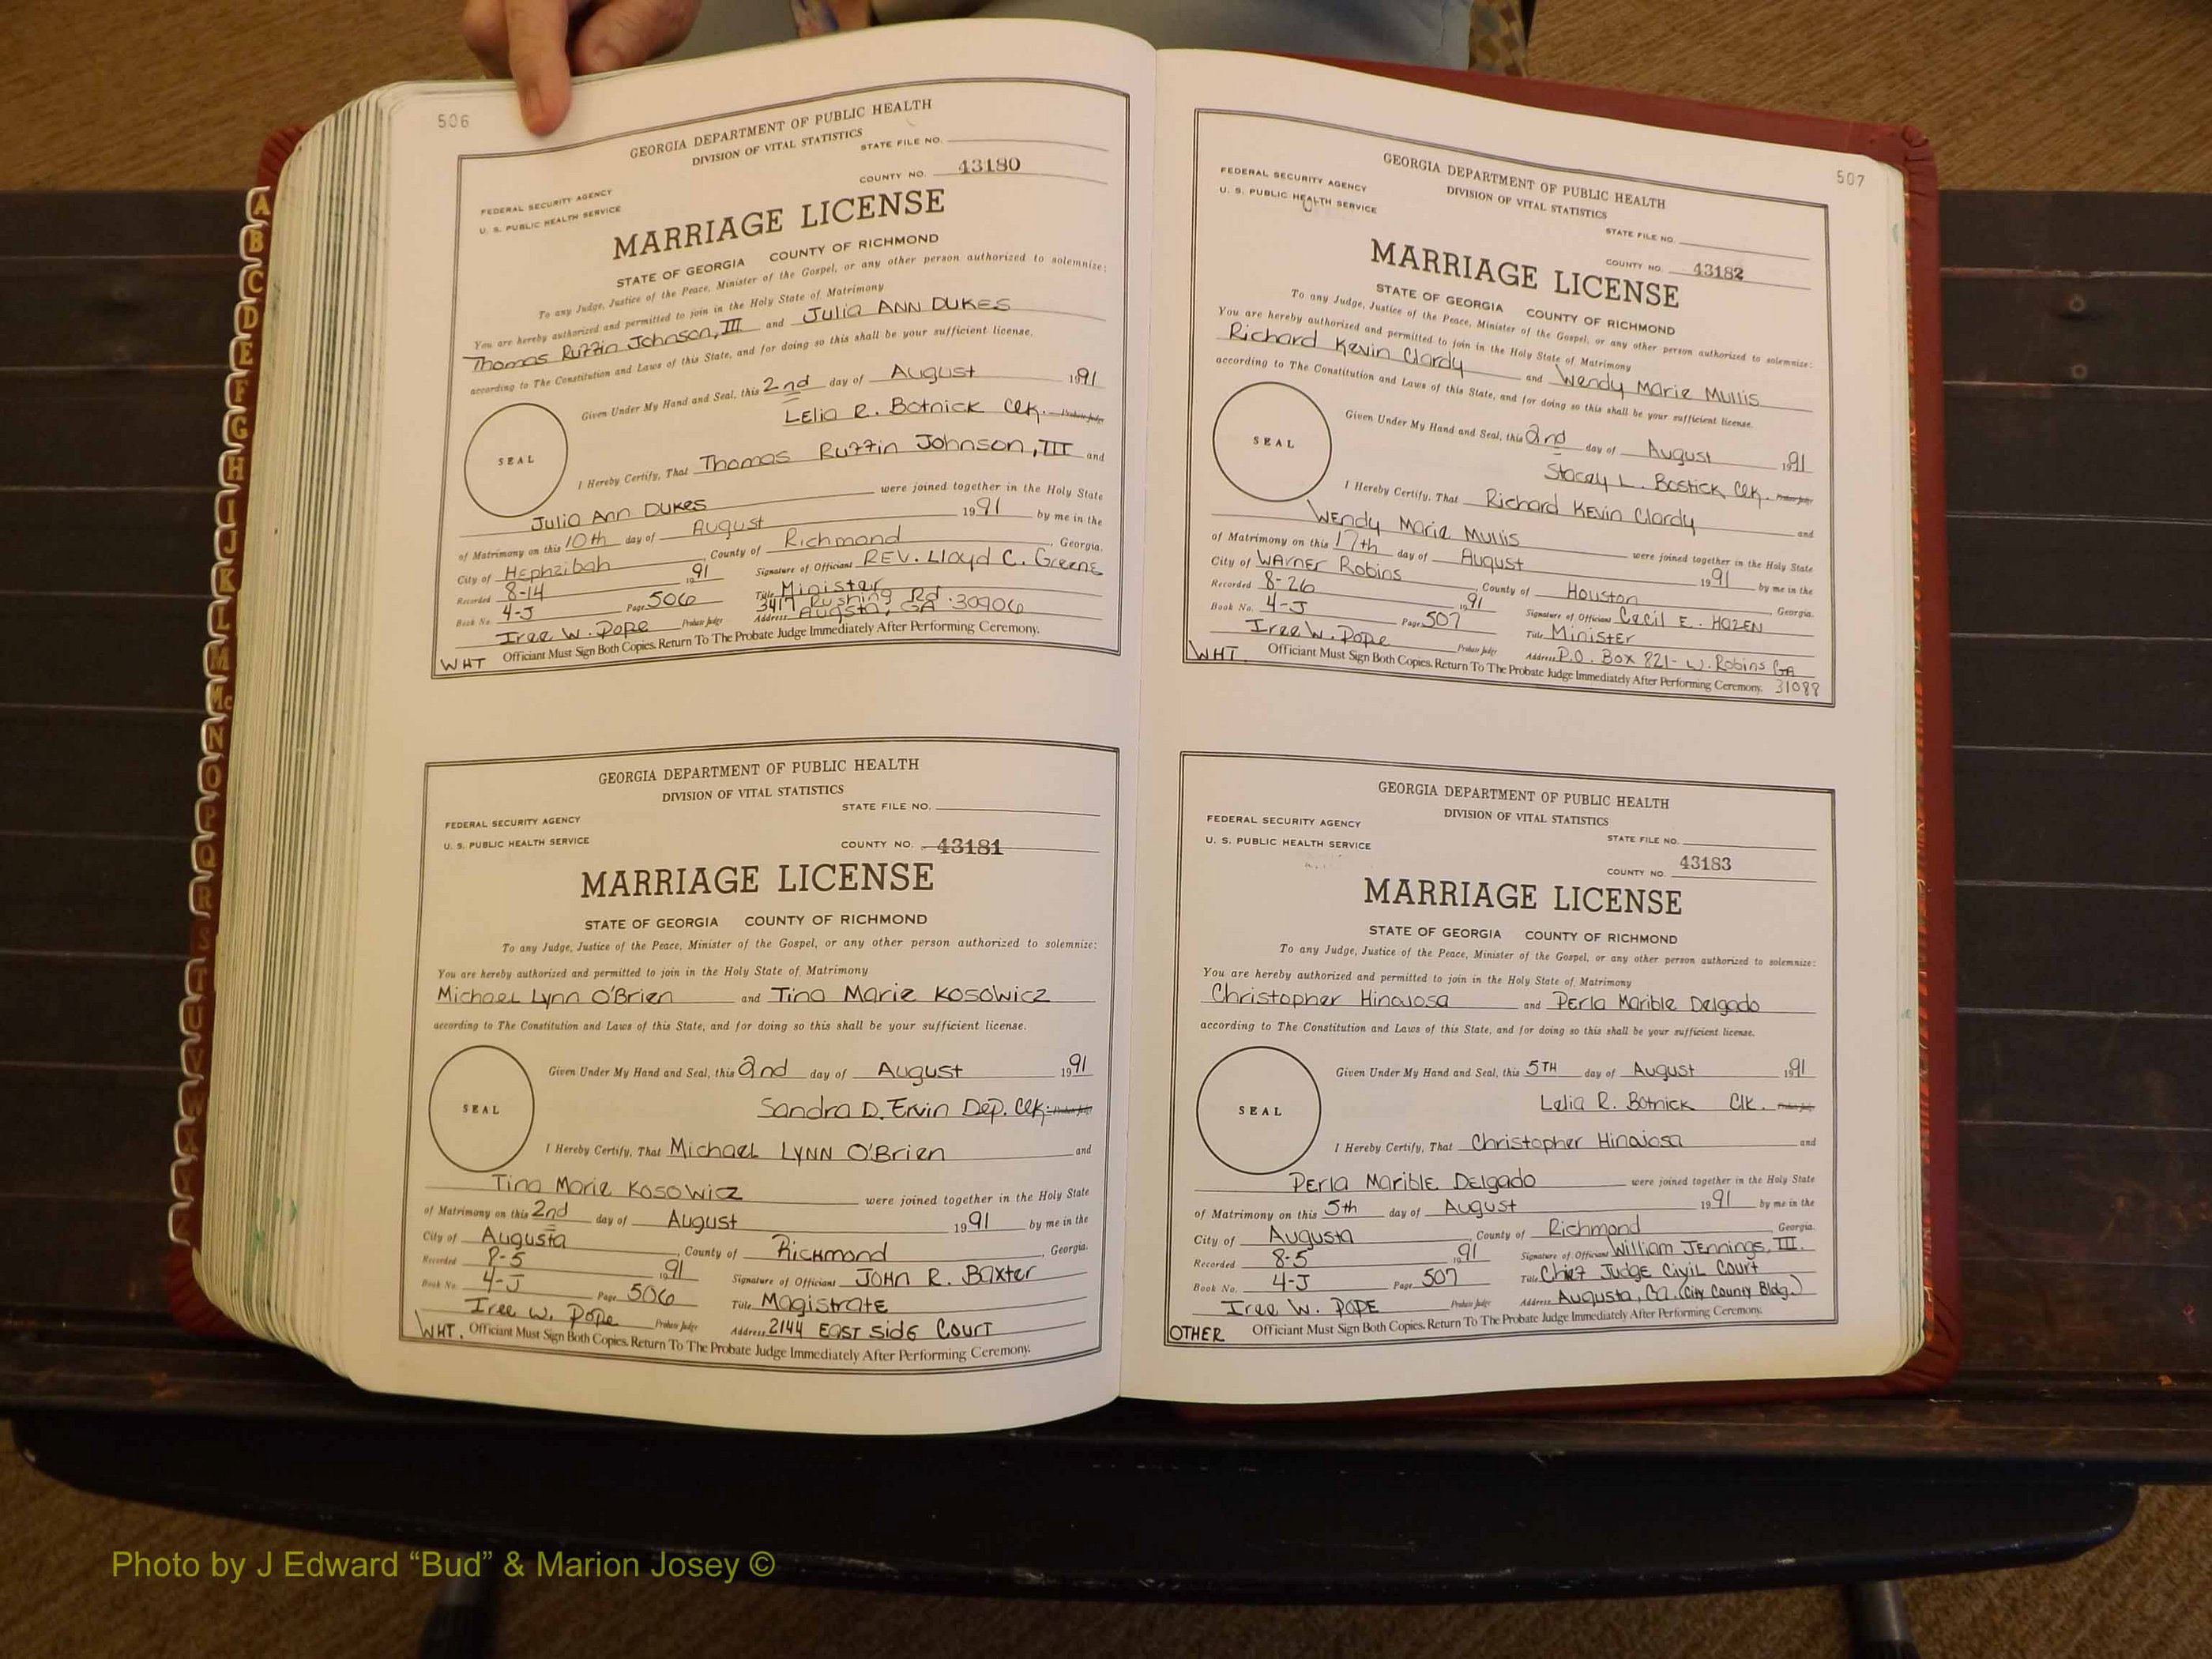 506
GEORGIA DEPARTMENT OF PUBLIC HEALTH
DIVISION OF VITAL STATISTICS
STATE FILE NO.
COUNTY NO. 43180
FEDERAL SECURITY AGENCY
U. S. PUBLIC HEALTH SERVICE
MARRIAGE LICENSE
STATE OF GEORGIA COUNTY OF RICHMOND
To any Judge, Justice of the Peace, Minister of the Gospel, or any other person authorized to solemnize:
You are hereby authorized and permitted to join in the Holy State of Matrimony
Thomas Ruffin Johnson, III and Julia ANN DUKES
according to The Constitution and Laws of this State, and for doing so this shall be your sufficient license.
Given Under My Hand and Seal, this 2nd day of August 1991
Lelia R. Botnick Clk. Probate Judge
SEAL
I Hereby Certify, That Thomas Ruffin Johnson, III and
Julia Ann Dukes were joined together in the Holy State
of Matrimony on this 10th day of August 1991 by me in the
City of Hephzibah, County of Richmond, Georgia.
Recorded 8-14 1991 Signature of Officiant REV. Lloyd C. Greene
Book No. 4-J Page 506 Title Minister
3417 Rushing Rd.
Address Augusta, GA 30906
Iree W. Pope Probate Judge
WHT Officiant Must Sign Both Copies. Return To The Probate Judge Immediately After Performing Ceremony.
GEORGIA DEPARTMENT OF PUBLIC HEALTH
DIVISION OF VITAL STATISTICS
STATE FILE NO.
FEDERAL SECURITY AGENCY
U. S. PUBLIC HEALTH SERVICE
COUNTY NO. 43181
MARRIAGE LICENSE
STATE OF GEORGIA COUNTY OF RICHMOND
To any Judge, Justice of the Peace, Minister of the Gospel, or any other person authorized to solemnize:
You are hereby authorized and permitted to join in the Holy State of Matrimony
Michael Lynn O'Brien and Tina Marie Kosowicz
according to The Constitution and Laws of this State, and for doing so this shall be your sufficient license.
Given Under My Hand and Seal, this 2nd day of August 1991
Sandra D. Ervin Dep. Clk. Probate Judge
SEAL
I Hereby Certify, That Michael LYNN O'Brien and
Tina Marie Kosowicz were joined together in the Holy State
of Matrimony on this 2nd day of August 1991 by me in the
City of Augusta, County of Richmond, Georgia.
Recorded 8-5 1991 Signature of Officiant JOHN R. Baxter
Book No. 4-J Page 506 Title Magistrate
Iree W. Pope Probate Judge Address 2144 EAST Side Court
WHT. Officiant Must Sign Both Copies. Return To The Probate Judge Immediately After Performing Ceremony.
507
GEORGIA DEPARTMENT OF PUBLIC HEALTH
DIVISION OF VITAL STATISTICS
FEDERAL SECURITY AGENCY
U. S. PUBLIC HEALTH SERVICE
STATE FILE NO.
COUNTY NO. 43182
MARRIAGE LICENSE
STATE OF GEORGIA COUNTY OF RICHMOND
To any Judge, Justice of the Peace, Minister of the Gospel, or any other person authorized to solemnize:
You are hereby authorized and permitted to join in the Holy State of Matrimony
Richard Kevin Clardy and Wendy Marie Mullis
according to The Constitution and Laws of this State, and for doing so this shall be your sufficient license.
Given Under My Hand and Seal, this 2nd day of August 1991
Stacey L. Bostick Clk. Probate Judge
SEAL
I Hereby Certify, That Richard Kevin Clardy and
Wendy Marie Mullis were joined together in the Holy State
of Matrimony on this 17th day of August 1991 by me in the
City of Warner Robins, County of Houston, Georgia.
Recorded 8-26 1991 Signature of Officiant Cecil E. HAZEN
Book No. 4-J Page 507 Title Minister
Iree W. Pope Probate Judge Address P.O. Box 821- W. Robins GA
WHT. Officiant Must Sign Both Copies. Return To The Probate Judge Immediately After Performing Ceremony. 31088
GEORGIA DEPARTMENT OF PUBLIC HEALTH
DIVISION OF VITAL STATISTICS
FEDERAL SECURITY AGENCY
U. S. PUBLIC HEALTH SERVICE
STATE FILE NO.
COUNTY NO. 43183
MARRIAGE LICENSE
STATE OF GEORGIA COUNTY OF RICHMOND
To any Judge, Justice of the Peace, Minister of the Gospel, or any other person authorized to solemnize:
You are hereby authorized and permitted to join in the Holy State of Matrimony
Christopher Hinojosa and Perla Marible Delgado
according to The Constitution and Laws of this State, and for doing so this shall be your sufficient license.
Given Under My Hand and Seal, this 5TH day of August 1991
Lelia R. Botnick Clk. Probate Judge
SEAL
I Hereby Certify, That Christopher Hinojosa and
Perla Marible Delgado were joined together in the Holy State
of Matrimony on this 5th day of August 1991 by me in the
City of Augusta, County of Richmond, Georgia.
Recorded 8-5 1991 Signature of Officiant William Jennings, III.
Book No. 4-J Page 507 Title Chief Judge Civil Court
Iree W. POPE Probate Judge Address Augusta, Ga. (City County Bldg.)
OTHER Officiant Must Sign Both Copies. Return To The Probate Judge Immediately After Performing Ceremony.
A
B
C
D
E
F
G
H
I
J
K
L
M
Mc
N
O
P
Q
R
S
T
U
V
Photo by J Edward “Bud” & Marion Josey ©